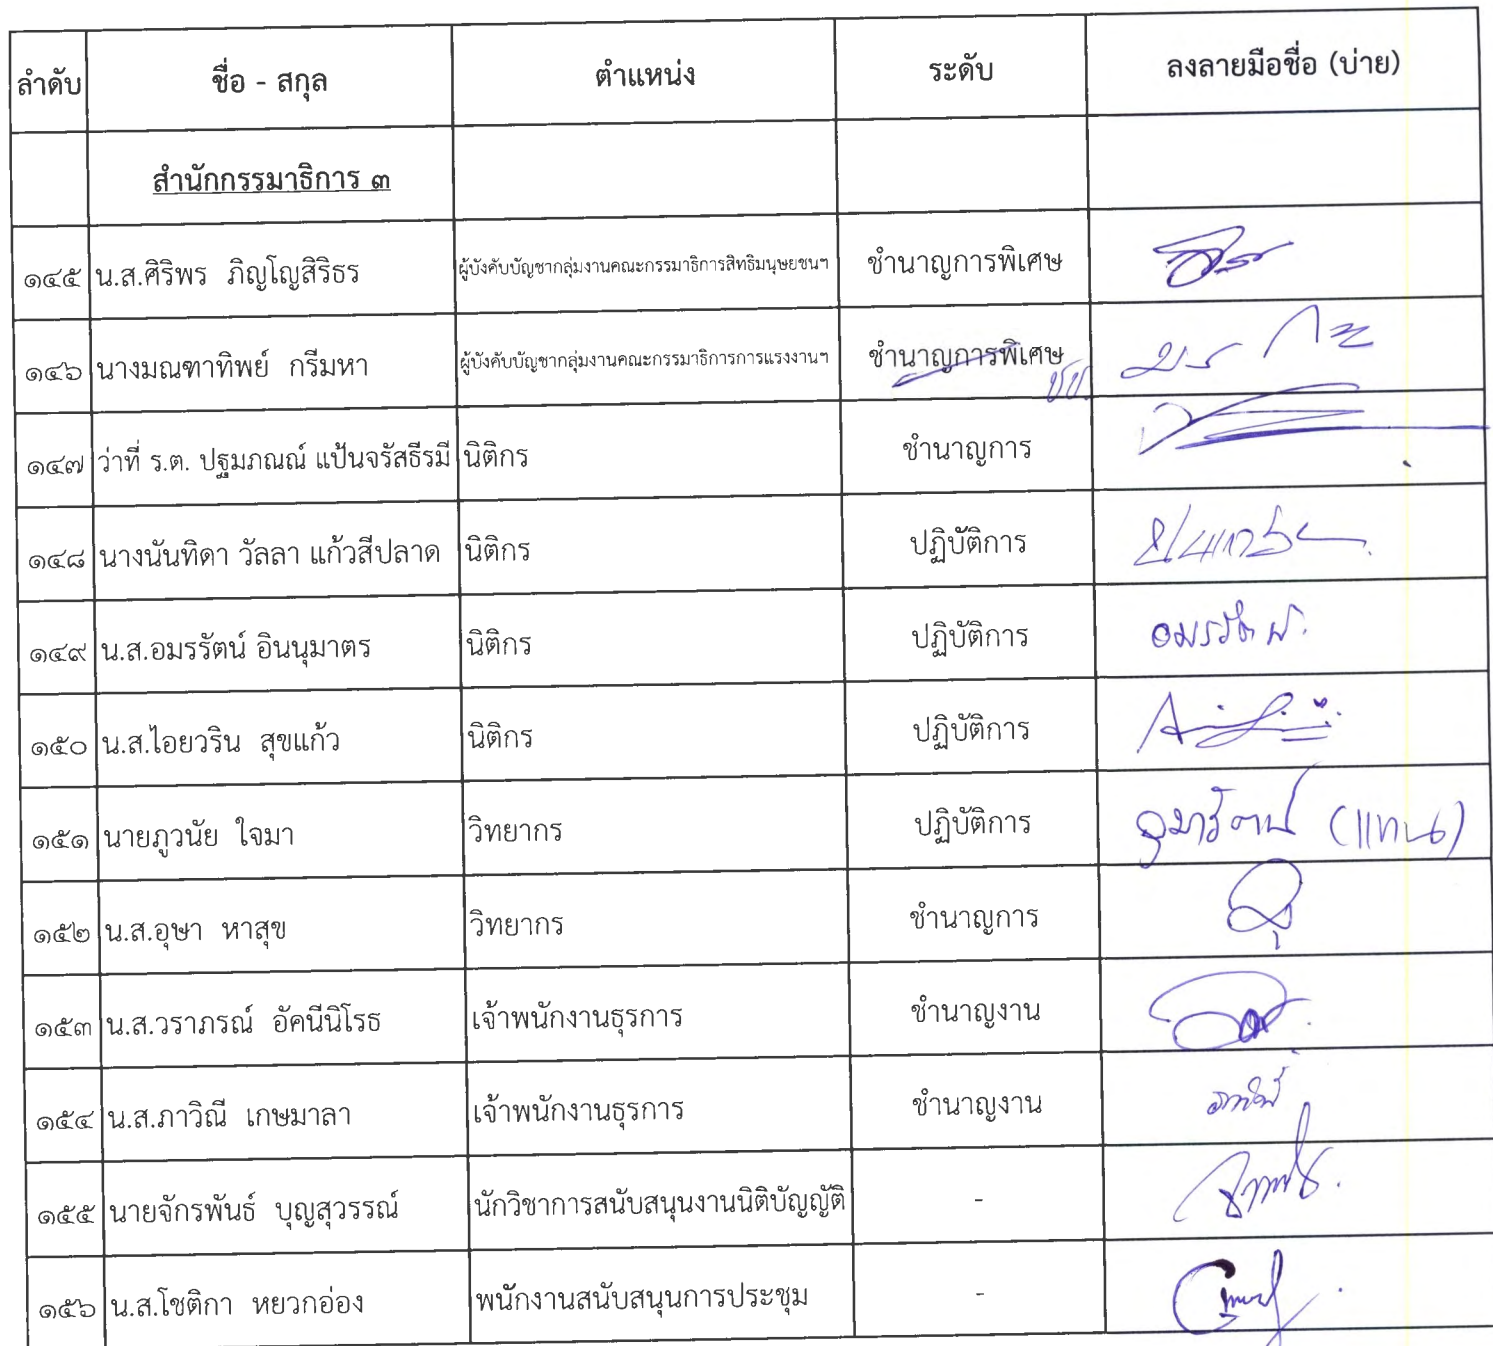 ลำดับ ชื่อ - สกุล ตำแหน่ง ระดับ ลงลายมือชื่อ (บ่าย)
สำนักกรรมาธิการ ๓
๑๔๕ น.ส.ศิริพร ภิญโญสิริธร ผู้บังคับบัญชากลุ่มงานคณะกรรมาธิการสิทธิมนุษยชนฯ ชำนาญการพิเศษ
๑๔๖ นางมณฑาทิพย์ กรีมหา ผู้บังคับบัญชากลุ่มงานคณะกรรมาธิการการแรงงานฯ ชำนาญการพิเศษ
๑๔๗ ว่าที่ ร.ต. ปฐมภณณ์ แป้นจรัสธีรมี นิติกร ชำนาญการ
๑๔๘ นางนันทิดา วัลลา แก้วสีปลาด นิติกร ปฏิบัติการ
๑๔๙ น.ส.อมรรัตน์ อินนุมาตร นิติกร ปฏิบัติการ อมรรัตน์.
๑๕๐ น.ส.ไอยวริน สุขแก้ว นิติกร ปฏิบัติการ
๑๕๑ นายภูวนัย ใจมา วิทยากร ปฏิบัติการ (แทน)
๑๕๒ น.ส.อุษา หาสุข วิทยากร ชำนาญการ
๑๕๓ น.ส.วราภรณ์ อัคนีนิโรธ เจ้าพนักงานธุรการ ชำนาญงาน
๑๕๔ น.ส.ภาวิณี เกษมาลา เจ้าพนักงานธุรการ ชำนาญงาน
๑๕๕ นายจักรพันธ์ บุญสุวรรณ์ นักวิชาการสนับสนุนงานนิติบัญญัติ -
๑๕๖ น.ส.โชติกา หยวกอ่อง พนักงานสนับสนุนการประชุม -